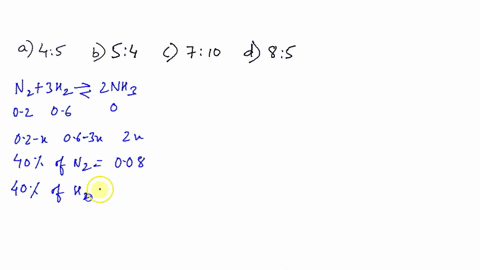 a) 4:5 b) 5:4 c) 7:10 d) 8:5
N₂+3H₂ ⇌ 2NH₃
0.2 0.6 0
0.2-x 0.6-3x 2x
40% of N₂ = 0.08
40% of H₂